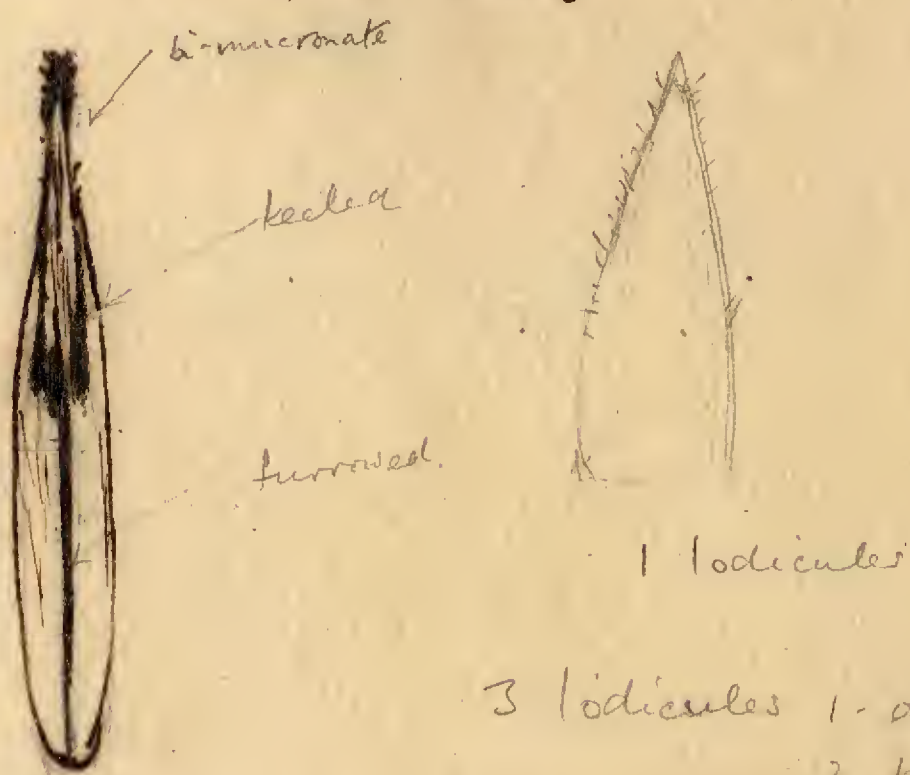 bi-mucronate
keeled
furrowed.
1 lodicules
3 lodicules 1-